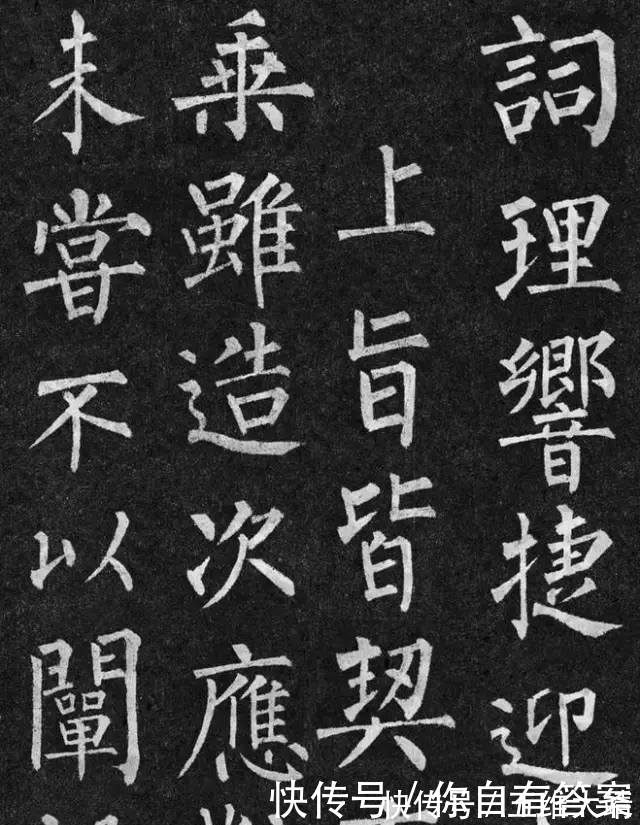 詞理響捷迎
上旨皆契
乘雖造次應
未嘗不以闡
快传号/你自有答案